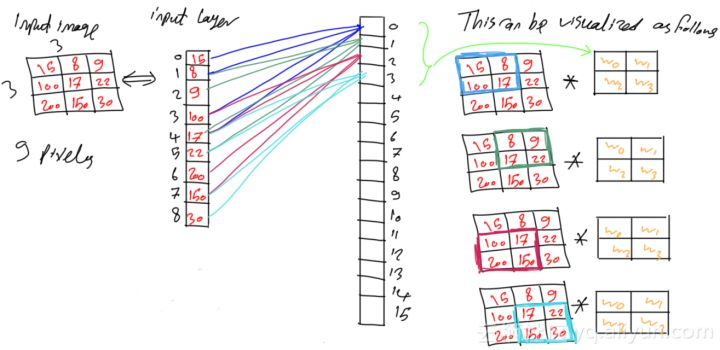 Input image
3
15 8 9
3
100 17 22
200 150 30
9 Pixels
input Layer
0 15
1 8
2 9
3 100
4 17
5 22
6 200
7 150
8 30
0
1
2
3
4
5
6
7
8
9
10
11
12
13
14
15
This can be visualized as follows
15 8 9
100 17 22
200 150 30
*
w0 w1
w2 w3
15 8 9
100 17 22
200 150 30
*
w0 w1
w2 w3
15 8 9
100 17 22
200 150 30
*
w0 w1
w2 w3
15 8 9
100 17 22
200 150 30
*
w0 w1